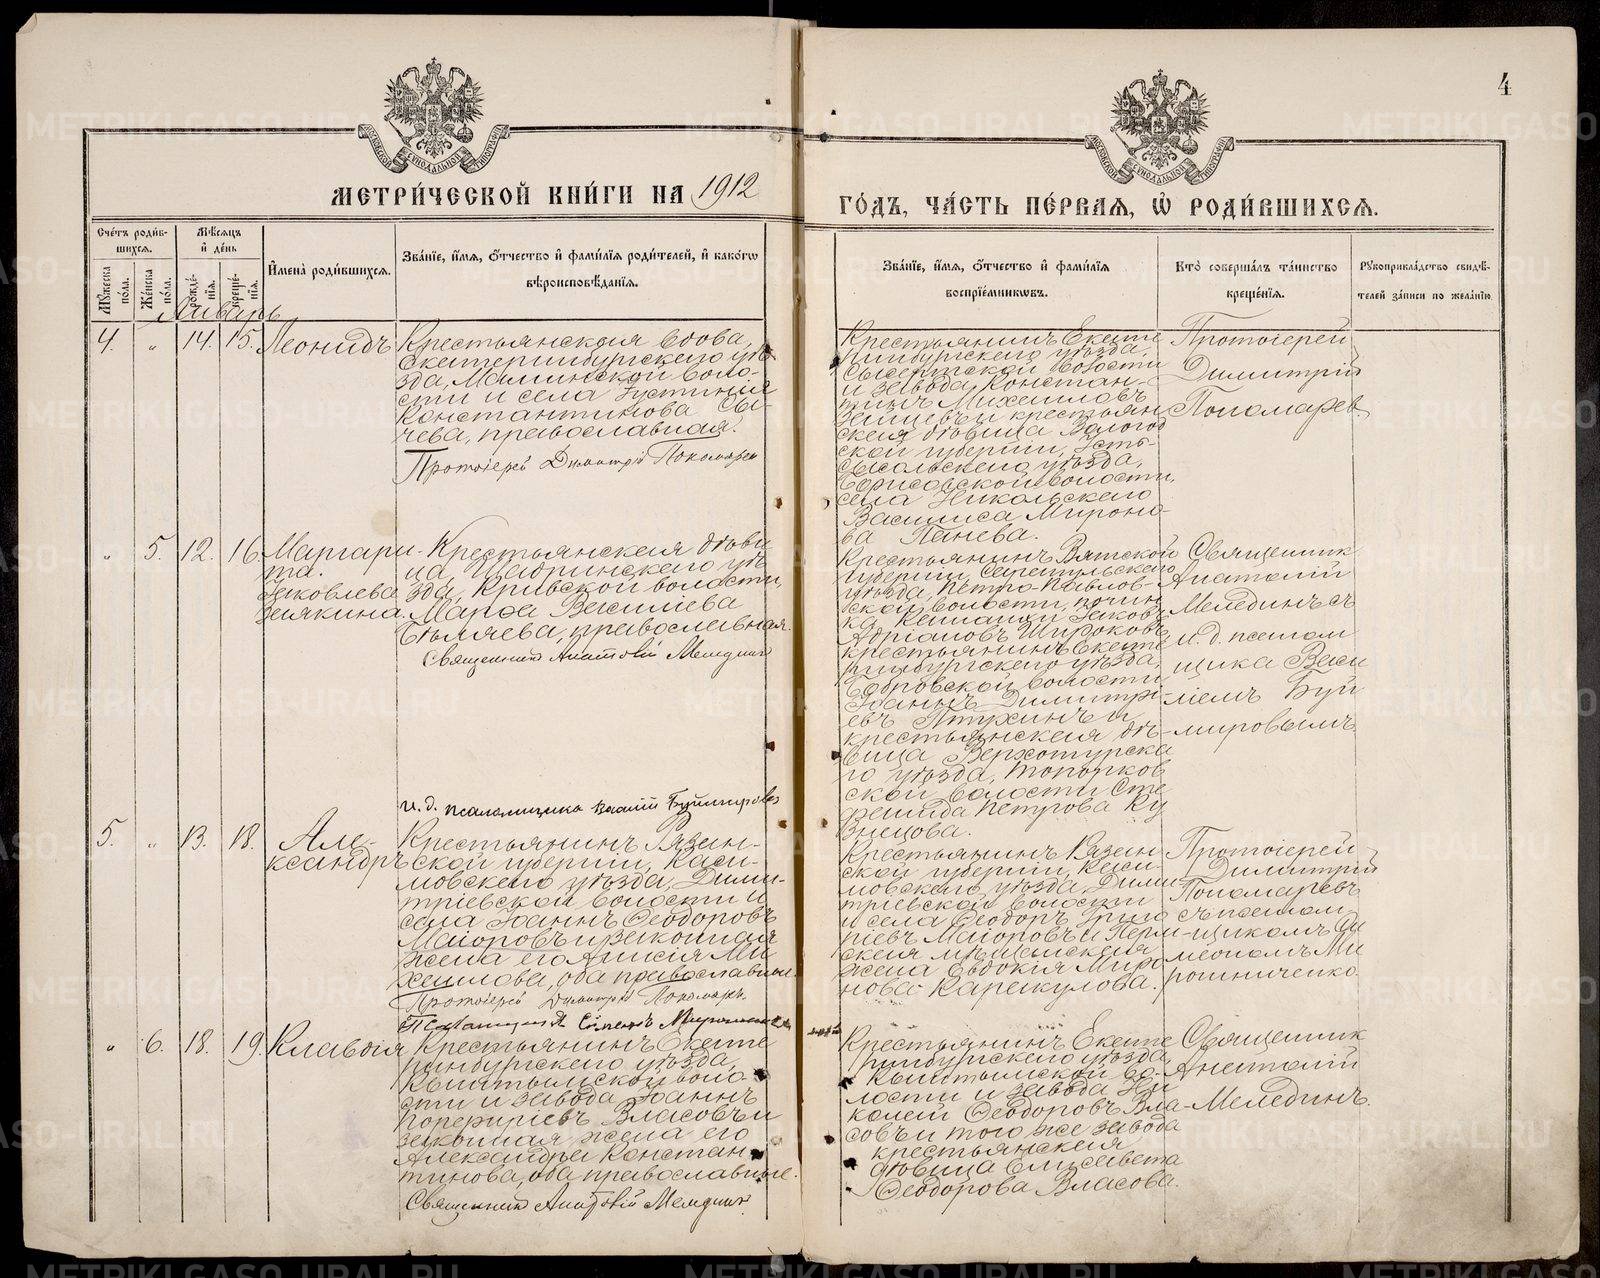 4
МЕТРИ́ЧЕСКОЙ КНИ́ГИ НА 1912
ГО́ДЪ, ЧА́СТЬ ПЕ́РВАЯ, Ѡ҆ РОДИ́ВШИХСЯ.
Сче́тъ роди́вшихся.
Мѣ́сяцъ и҆ де́нь
Мꙋ́жеска по́ла.
Же́нска по́ла.
рожде́нїя.
креще́нїя.
И҆мена̀ роди́вшихся.
Зва́нїе, и҆́мя, ѻ҆́тчество и҆ фами́лїя роди́телей, и҆ како́гѡ
вѣроисповѣ́данїя.
Зва́нїе, и҆́мя, ѻ҆́тчество и҆ фами́лїя
воспрїе́мникѡвъ.
Кто̀ соверша́лъ та́инство
креще́нїя.
Рꙋкоприкла́дство свидѣ́-
телей за́писи по жела́нїю.
Январь
4. " 14. 15. Леонидъ
Крестьянская вдова,
Екатеринбургскаго уѣ-
зда, Маминской воло-
сти и села Іустинія
Константинова Сы-
чева, православная.
Протоіерей Димитрій Пономарев
Крестьянинъ Екате
ринбургскаго уѣзда,
Сысертской волости
и завода Констан-
тинъ Михаиловъ
и крестьян
ская дѣвица Вологод
ской губерніи, Усть-
сысольскаго уѣзда,
волости,
села Никольскаго
Василиса Мироно-
ва Панева.
Протоіерей
Димитрій
Пономарев
" 5. 12. 16. Маргари-
та.
Іаковлева
Крестьянская дѣви
ца, Шадринскаго уѣ
зда, Кривской волости,
Марѳа Василіева
Бѣляева, православная.
Священник Анатолій Мелединъ
и. д. псаломщика Василій Буймировъ
Крестьянинъ Вятской
губерніи, Сарапульскаго
уѣзда, Петро-Павлов-
ской волости, почин
ка Іаковъ
Адріановъ Широковъ,
крестьянинъ Екате
ринбургскаго уѣзда,
Бобровской волости
Іоаннъ Димитрі-
евъ Птухинъ и
крестьянская дѣ-
вица Верхотурска
го уѣзда, Топорков
ской волости Сте
фанида Петрова Ку
знецова.
Священник
Анатолій
Мелединъ съ
и. д. псалом
щика Васи
ліемъ Буй
мировымъ.
5. " 13. 18. Але-
ксандръ
Крестьянинъ Рязан-
ской губерніи, Каси-
мовскаго уѣзда, Дими-
тріевской волости и
села Іоаннъ Ѳеодоровъ
Маіоровъ и законная
жена его Анисія Ми
хаилова, оба православные
Протоіерей Димитрій Пономаревъ.
Псаломщикъ Симеонъ Мирошниченко
Крестьянинъ Рязан
ской губерніи, Каси-
мовскаго уѣзда, Дими-
тріевской волости
и села Ѳеодоръ Григо
ріевъ Маіоровъ и Перм-
ская мѣщанская
жена Евдокія Миро
нова Каракулова.
Протоіерей
Димитрій
Пономаревъ
съ псалом
щикомъ Си
меономъ Ми
рошниченко.
" 6. 18. 19. Клавдія
Крестьянинъ Екате
ринбургскаго уѣзда,
Кыштымской воло-
сти и завода Іоаннъ
Порфиріевъ Власовъ и
законная жена его
Александра Констан
тинова, оба православные.
Священник Анатолій Мелединъ
Крестьянинъ Екате
ринбургскаго уѣзда,
Кыштымской во-
лости и завода Ни
колай Ѳеодоровъ Вла-
совъ и того же завода
крестьянская
дѣвица Елисавета
Ѳеодорова Власова.
Священник
Анатолій
Мелединъ.